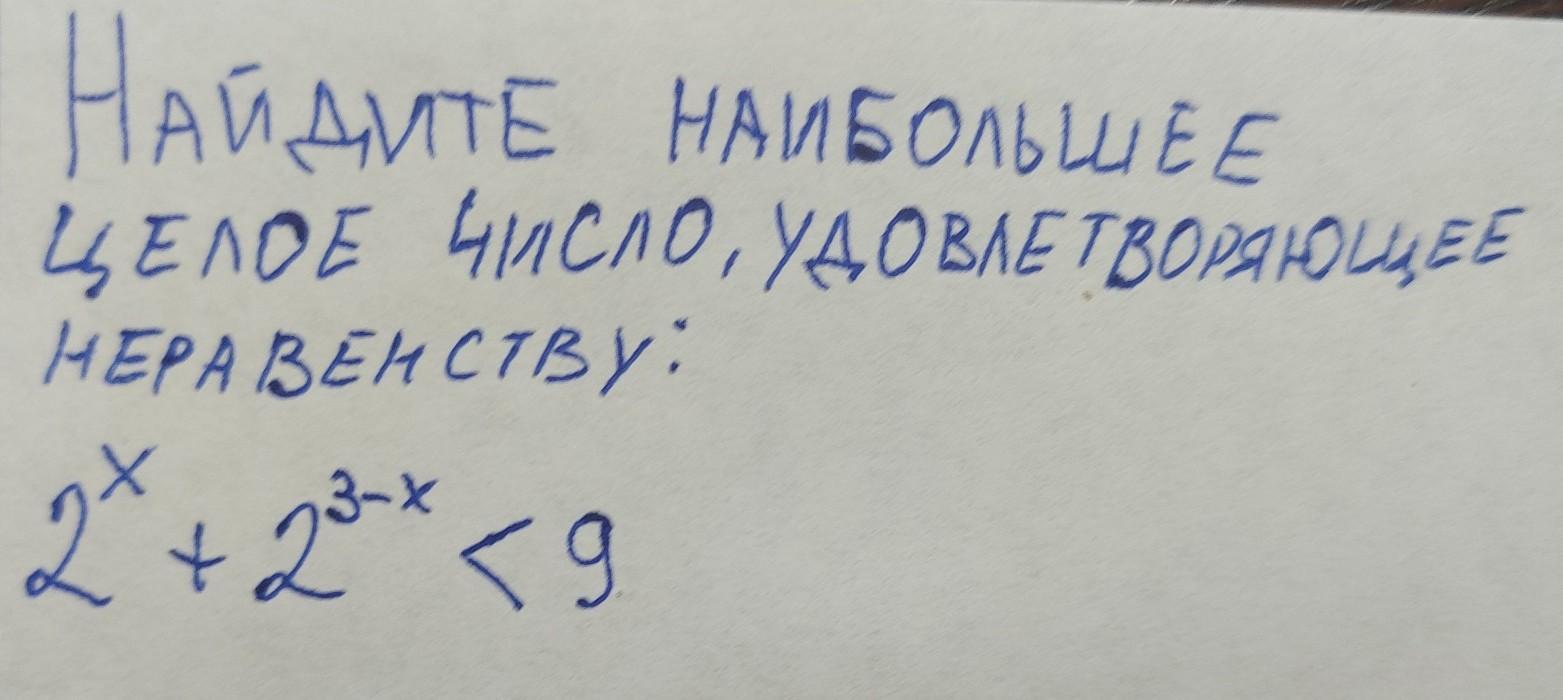 НАЙДИТЕ НАИБОЛЬШЕЕ
ЦЕЛОЕ ЧИСЛО, УДОВЛЕТВОРЯЮЩЕЕ
НЕРАВЕНСТВУ:
2^x + 2^{3-x} < 9